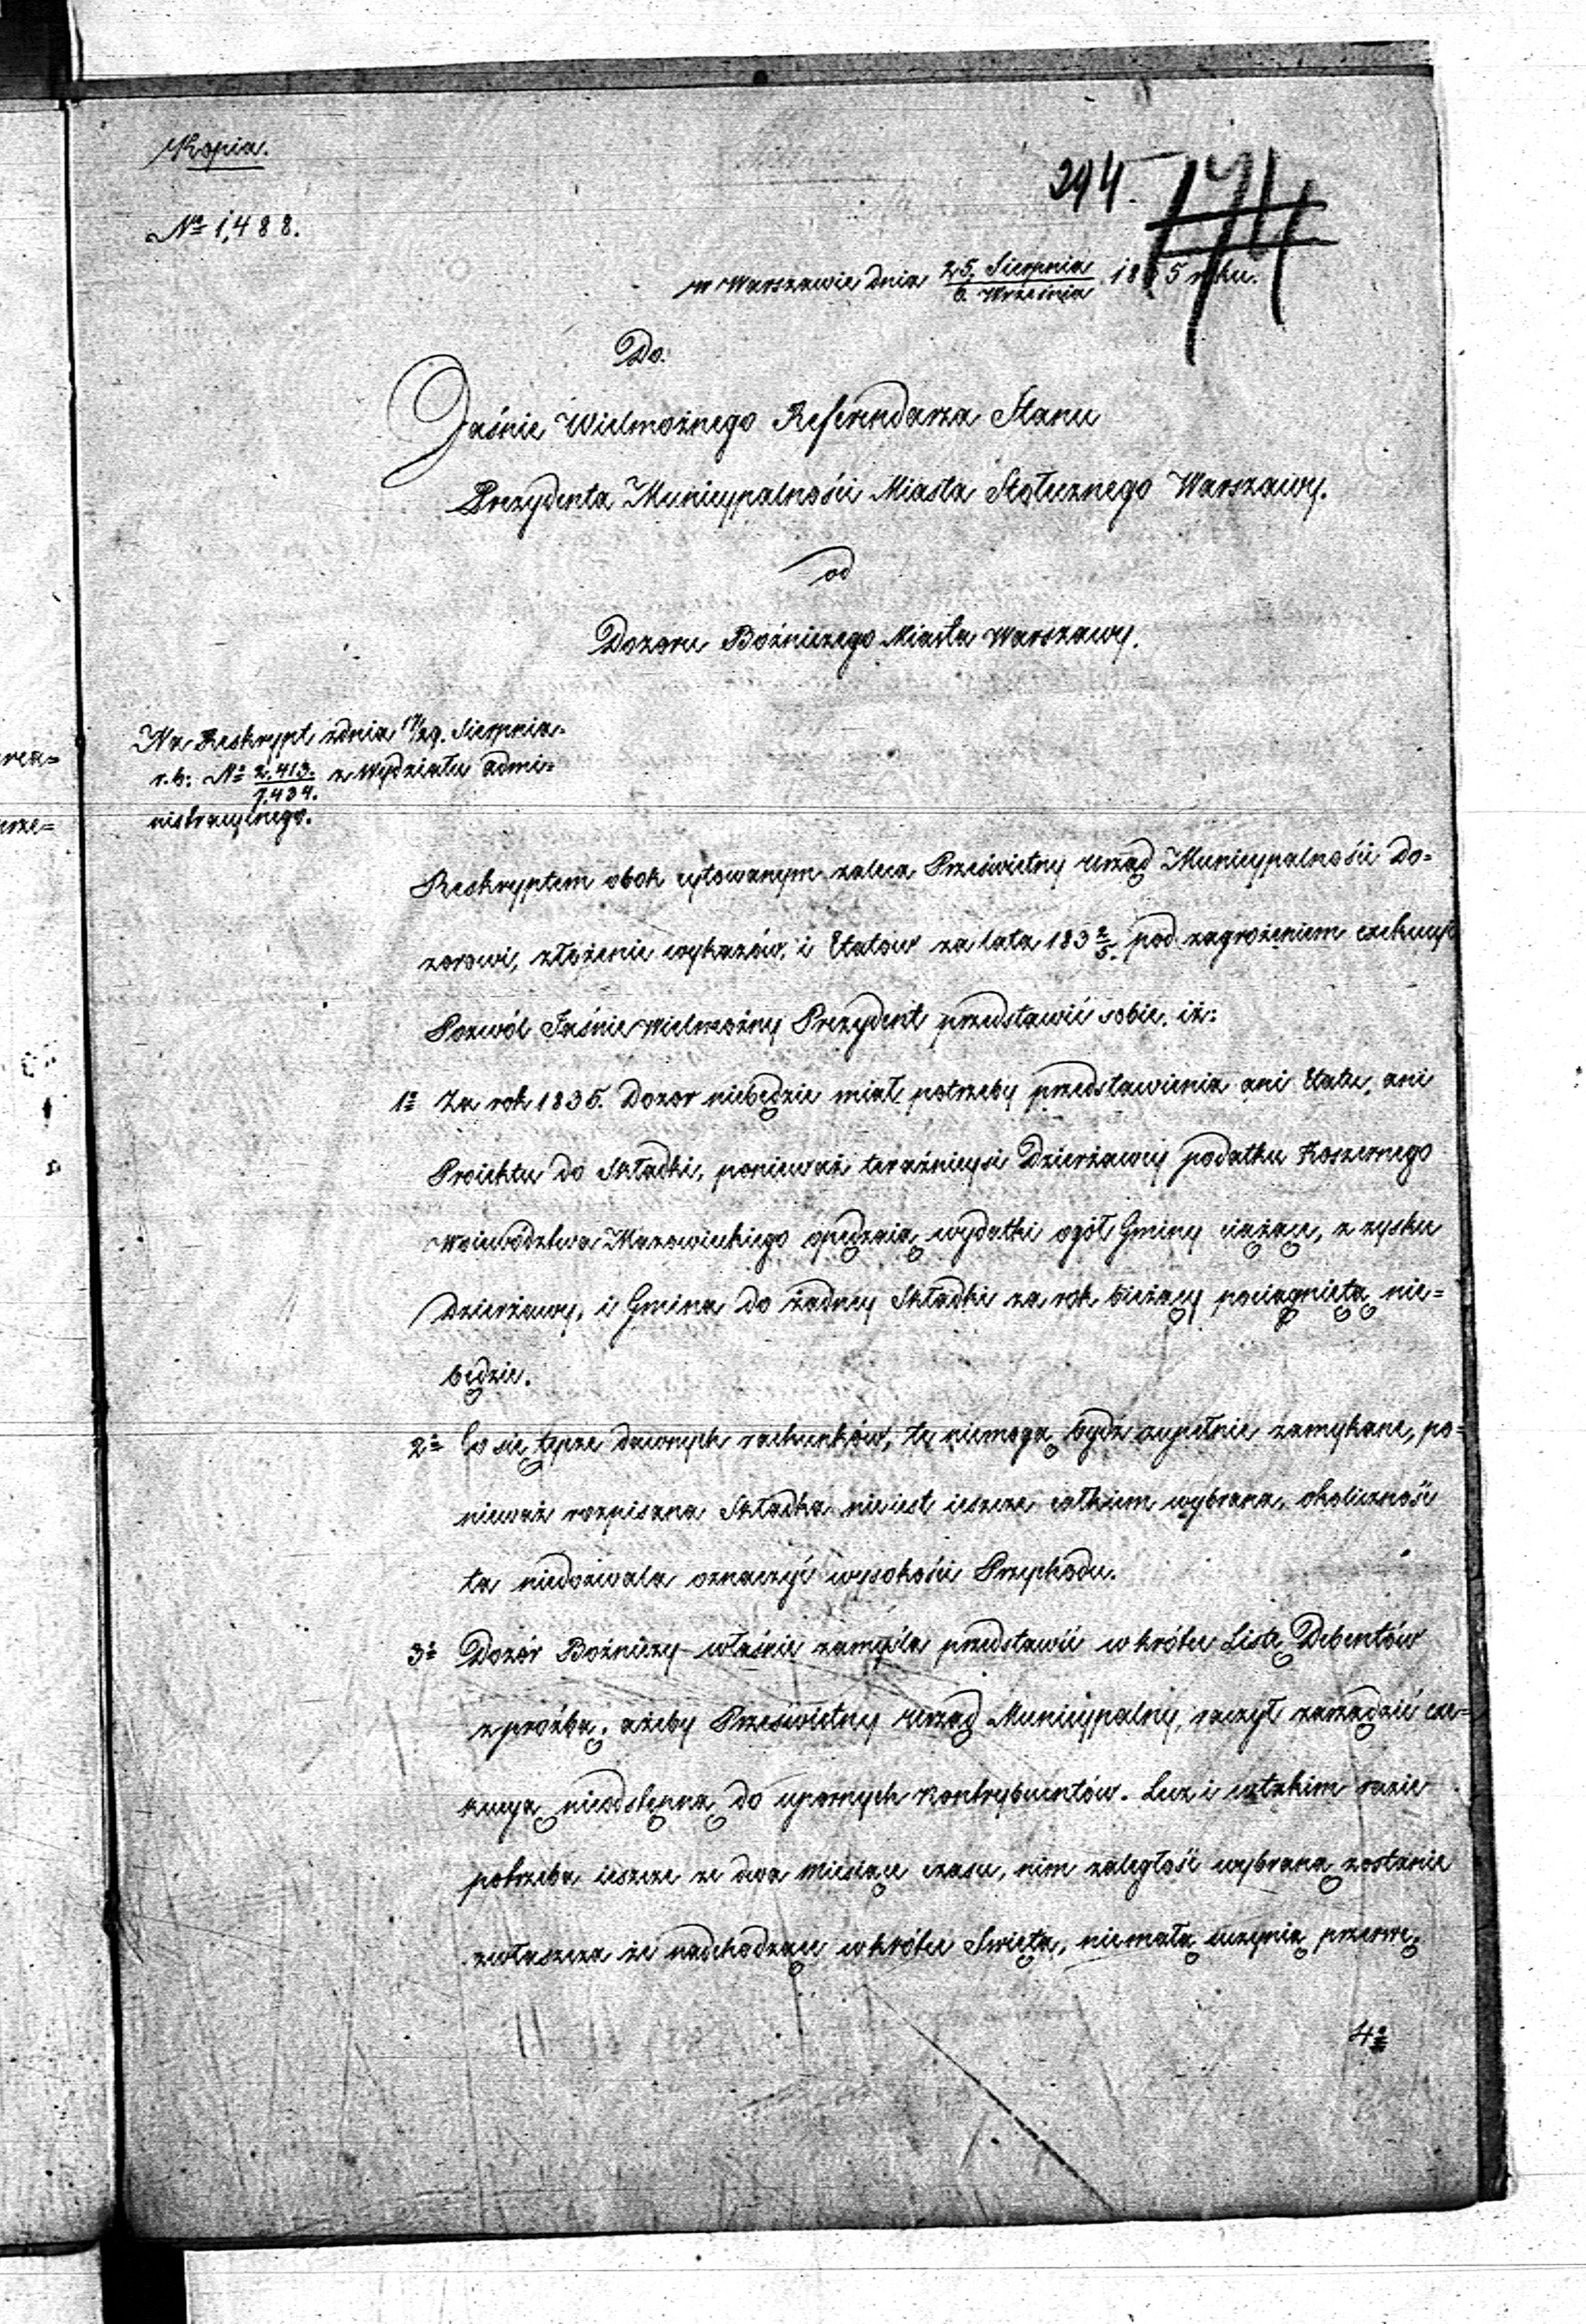 Kopia.
294. 174
№ 1,488.
w Warszawie dnia 25. Sierpnia / 6. Września 1835 roku.
Do.
Jaśnie Wielmożnego Referendarza Stanu
Prezydenta Municypalności Miasta Stołecznego Warszawy.
od
Dozoru Bożniczego Miasta Warszawy.
Na Reskrypt zdnia 17/29. Sierpnia
r. b. № 2,413. / 7,434. z Wydziału admi=
nistracyinego.
Reskryptem obok cytowanym zaleca Prześwietny Urząd Municypalności Do=
zorowi, złożenie wykazów, i Etatów za lata 183 2/5. pod zagrożeniem exekucyi
Pozwól Jaśnie Wielmożny Prezydent przedstawić sobie, iż:
1º Za rok 1835. Dozor niebędzie miał potrzeby przedstawienia ani Etatu, ani
Proiektu do Składki, ponieważ teraźnieysi Dzierżawcy podatku Koszernego
Woiewództwa Mazowieckiego opędzaią wydatki ogół Gminy ciążące, z zysku
Dzierżawy, i Gmina do żadney Składki za rok bieżący pociągnięta nie=
będzie.
2º Co się tycze dawnych rachunków, te niemogą bydź zupełnie zamykane, po=
nieważ rozpisana Składka nieiest ieszcze całkiem wybrana, okoliczność
ta niedozwala oznaczyć wysokości Przychodu.
3º Dozór Bożniczy właśnie zamyśla przedstawić wkrótce Listę Debentów
z prożbą, ażeby Prześwietny Urząd Municypalny, raczył zarządzić exe=
kucyą nieodstępną do upornych Kontrybuentów. Lecz i wtakim razie
potrzeba ieszcze ze dwa miesiące czasu, nim zaległość wybraną zostanie
zwłaszcza że nadchodzące wkrótce Swięta, niemałą uczynią przerwę.
4º